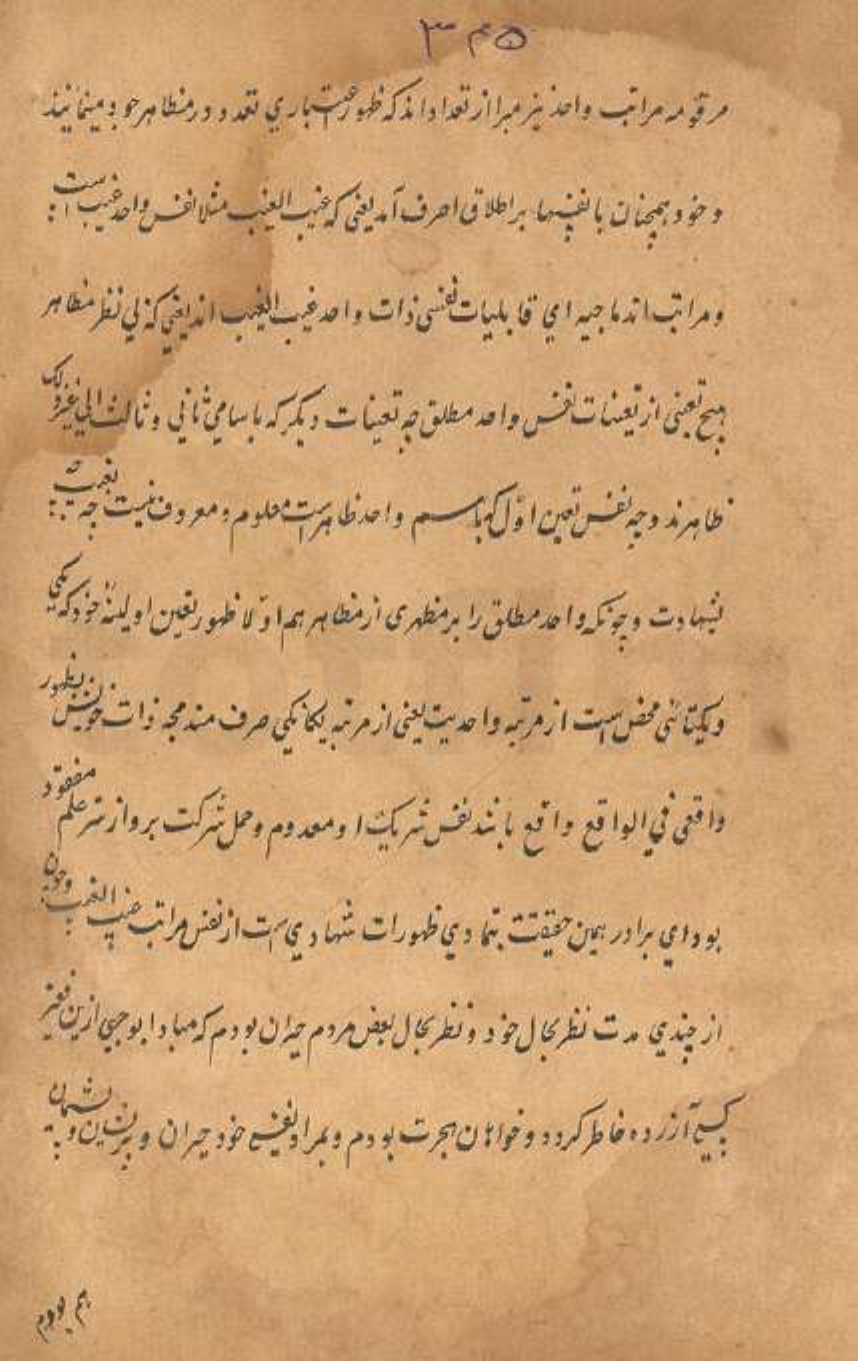 ۳۴۵
مرقومه مراتب واحد نیز مبرا از تعداد اند که ظهور اعتباری تعدد در مظاهر خود مینمایند
و خود همچنان بالفسها بر اطلاق صرف آمد یعنی که غیب الغیب مثلا نفس واحد غیب است
و مراتب اندماجیه ای قابلیات نفسی ذات واحد غیب الغیب اند یعنی که فی نظر مظاهر
هیچ تعینی از تعینات نفس واحد مطلق چه تعینات دیگر که باسامی ثانی و ثالث الی غیر ذلک
ظاهرند و چه نفس تعین اول که باسم واحد ظاهر است معلوم و معروف نیست چه بغیب
بشهادت و چونکه واحد مطلق را بر مظهری از مظاهر هم اولا ظهور تعین اولیه خود که یکی
و یکتائی محض است از مرتبه واحدیت یعنی از مرتبه یکانکی صرف ذات خویش بظهور
واقعی فی الواقع واقع نفس شریک او معدوم و حمل شرکت برو از سر علم مفقود
بود ای برادر همین حقیقت ظهورات شهادی است از نفس مراتب غیب الغیب و چون
از چندی مدت نظر بحال خود و نظر بحال بعض مردم حیران بودم که مبادا بوجهی ازین فقیر
کسی آزرده خاطر کردد و خواهان هجرت بودم و بمراد خود حیران و پریشان و پشیمان
هم بودم